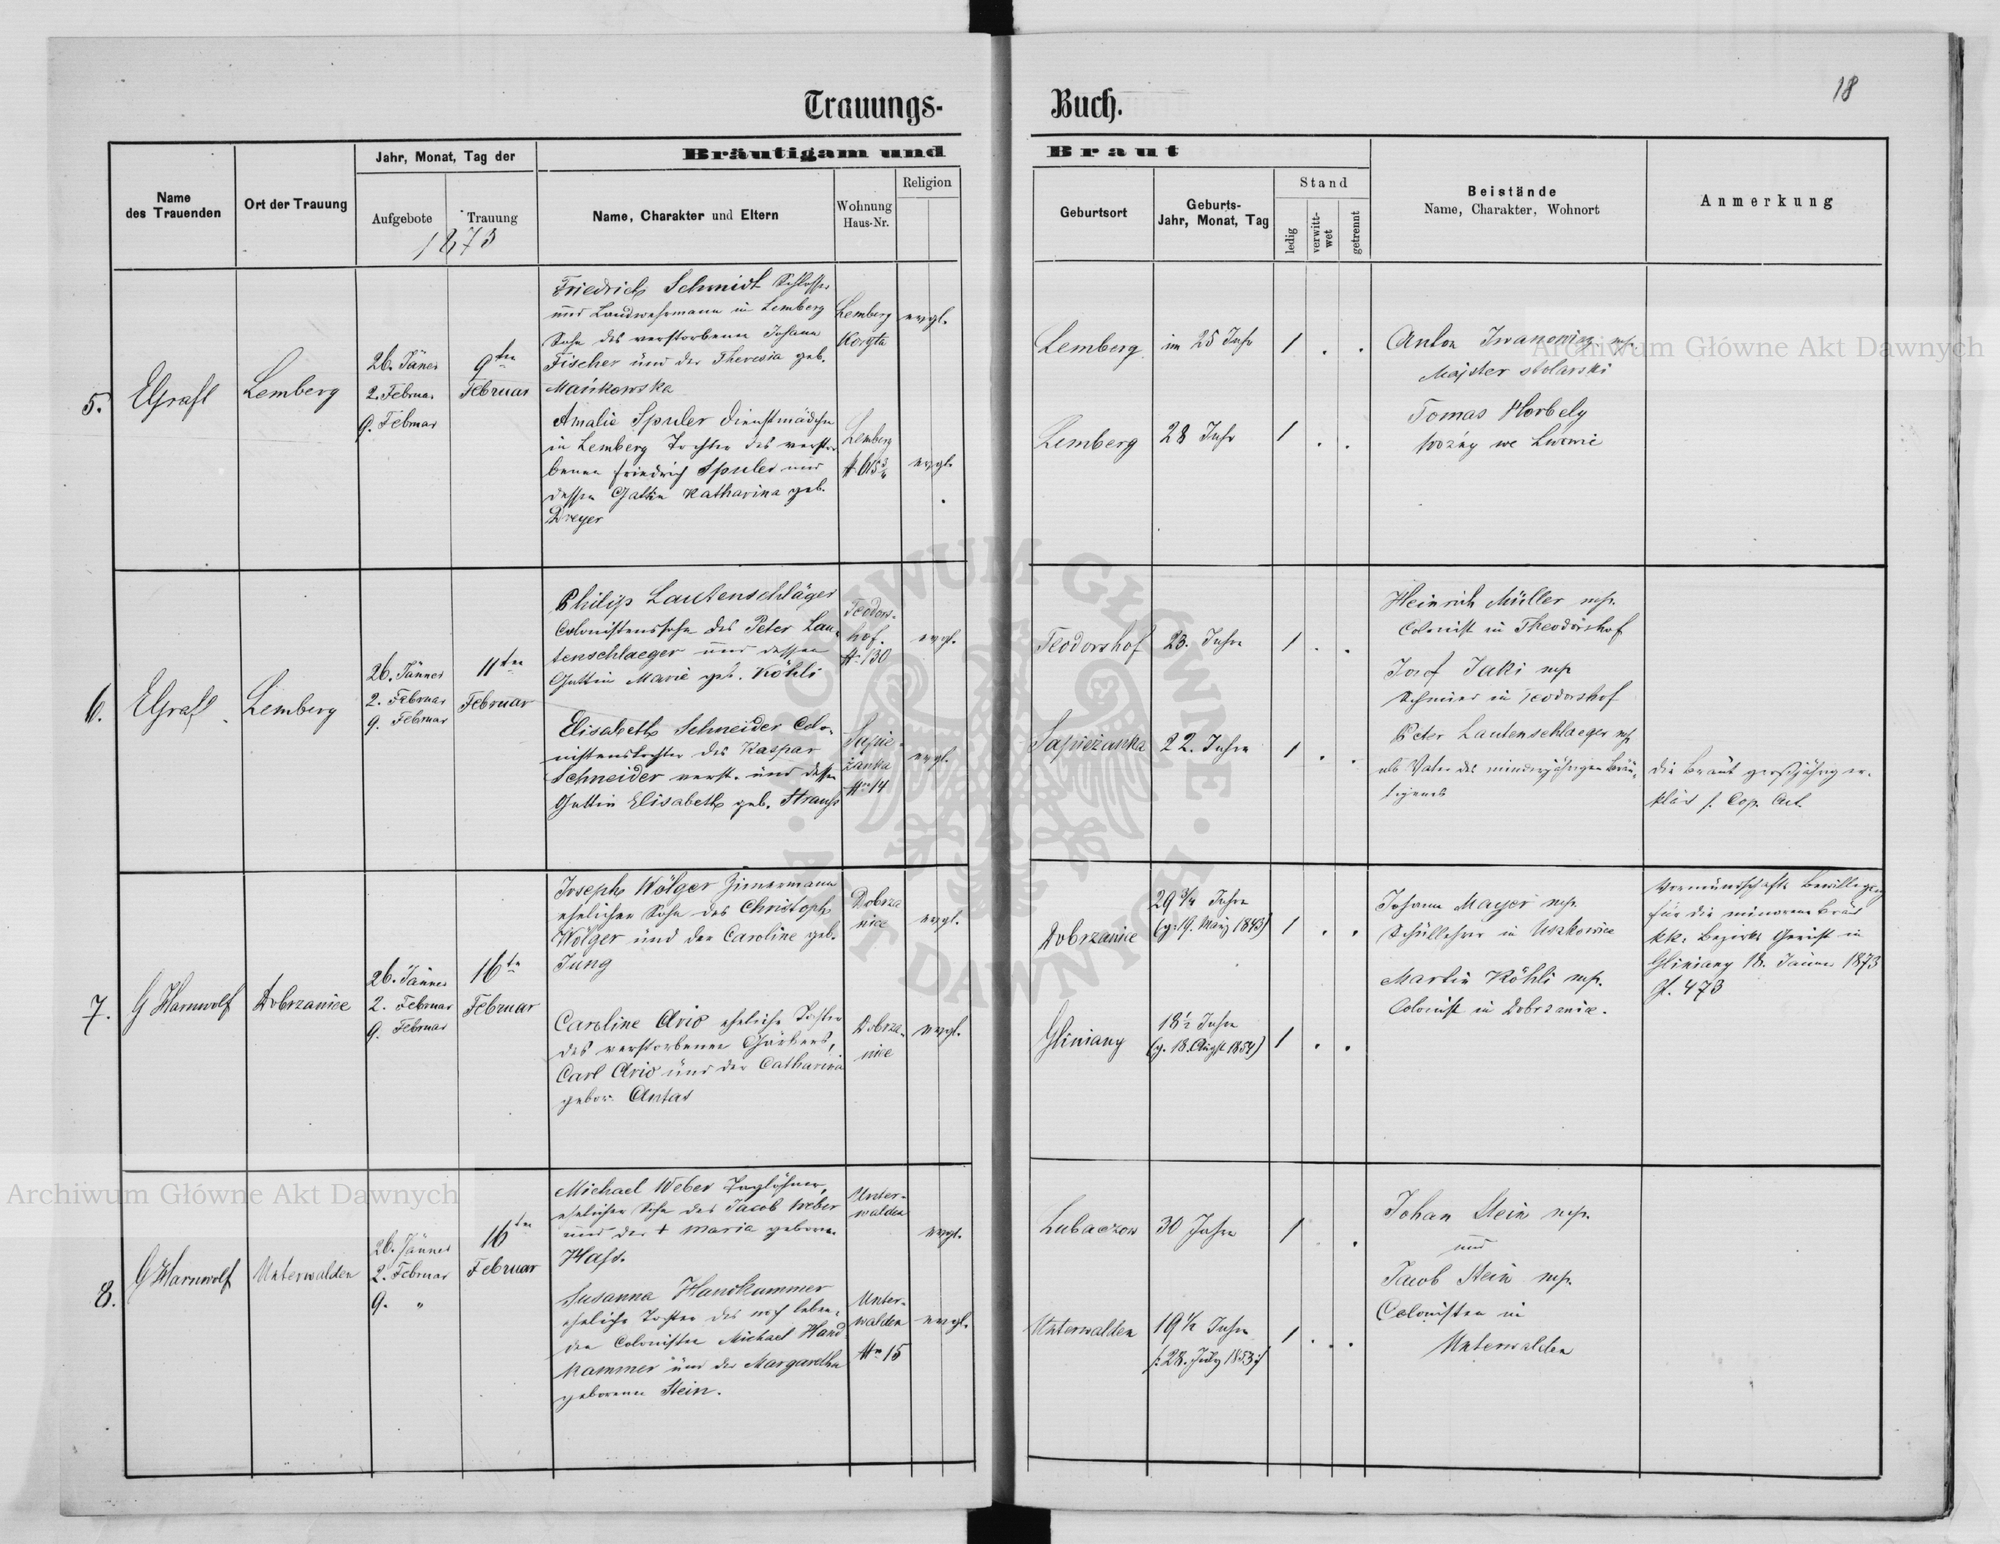 18
Trauungs-Buch.
Name des Trauenden
Ort der Trauung
Jahr, Monat, Tag der
Aufgebote
Trauung
1873
Bräutigam und Braut
Name, Charakter und Eltern
Wohnung Haus-Nr.
Religion
Geburtsort
Geburts-Jahr, Monat, Tag
Stand
ledig
verwittwet
getrennt
Beistände
Name, Charakter, Wohnort
Anmerkung
5.
EGrafl
Lemberg
26. Jäner
2. Februar
9. Februar
9ten
Februar
Friedrich Schmidt Schlosser
und Landwehrmann in Lemberg
Sohn des verstorbenen Johann
Fischer und der Theresia geb.
Mańkowska
Lemberg
evgl.
Lemberg
im 25 Jahr
1
Anton Iwanowicz mp.
Majster stolarski
Amalie Spuler Dienstmädchen
in Lemberg Tochter des verstor-
benen Friedrich Spuler und
dessen Gattin Katharina geb.
Dreyer
Lemberg
evgl.
Lemberg
28 Jahr
1
Tomas Horbely
Woźny we Lwowie
6.
EGrafl
Lemberg
26. Jänner
2. Februar
9. Februar
11ten
Februar
Philip Lautenschläger
Colonistenssohn des Peter Lau-
tenschlaeger und dessen
Gattin Marie geb. Köhli
Teodors-
hof.
No 130
evgl.
Teodorshof
23. Jahre
1
Heinrich Müller mp.
Colonist in Theodorshof
Josef Jaki mp
Schmied in Teodorshof
Elisabeth Schneider Colo-
nistenstochter des Kaspar
Schneider verst. und dessen
Gattin Elisabeth geb. Strauß
Sapie-
żanka
No 14
evgl.
Sapieżanka
22. Jahre
1
Peter Lautenschlaeger mp
als Vater des minderjährigen Bräu-
tigams
die Braut großjährig er-
klärt s. Cop. Act.
7.
G Harnwolf
Dobrzanice
26. Jänner
2. Februar
9. Februar
16te
Februar
Joseph Wölger Zimermann
ehelicher Sohn des Christoph
Wölger und der Caroline geb.
Jung
Dobrza
nice
evgl.
Dobrzanice
29 3/4 Jahre
(g. 19. März 1843)
1
Johann Mayer mp.
Schullehrer in Uszkowice
Vormundschafts Bewilligung
für die minorene Braut
kk. Bezirks Gericht in
Gliniany 18. Jänner 1873
Zl. 473
Caroline Ario eheliche Tochter
des verstorbenen Gärtners,
Carl Ario und der Catharina
gebor. Antas
Dobrza-
nice
evgl.
Gliniany
18 1/2 Jahre
(g. 18. August 1854)
1
Martin Köhli mp.
Colonist in Dobrzanice.
8.
G Harnwolf
Unterwalden
26. Jänner
2. Februar
9. "
16ten
Februar
Michael Weber Taglöhner,
ehelicher Sohn des Jacob Weber
und der + Maria geborn.
Unter-
walden
evgl.
Lubaczow
30 Jahre
1
Johan Stein mp.
und
Jacob Stein mp.
Colonisten in
Unterwalden
Susanna Handkammer
eheliche Tochter des noch leben-
den Colonisten Michael Hand
kammer und der Margaretha
geborenen Stein.
Unter-
walden
No 15
evgl.
Unterwalden
19 1/2 Jahre
/: 28. July 1853 :/
1
Archiwum Główne Akt Dawnych
Archiwum Główne Akt Dawnych
ARCHIWUM GŁÓWNE AKT DAWNYCH